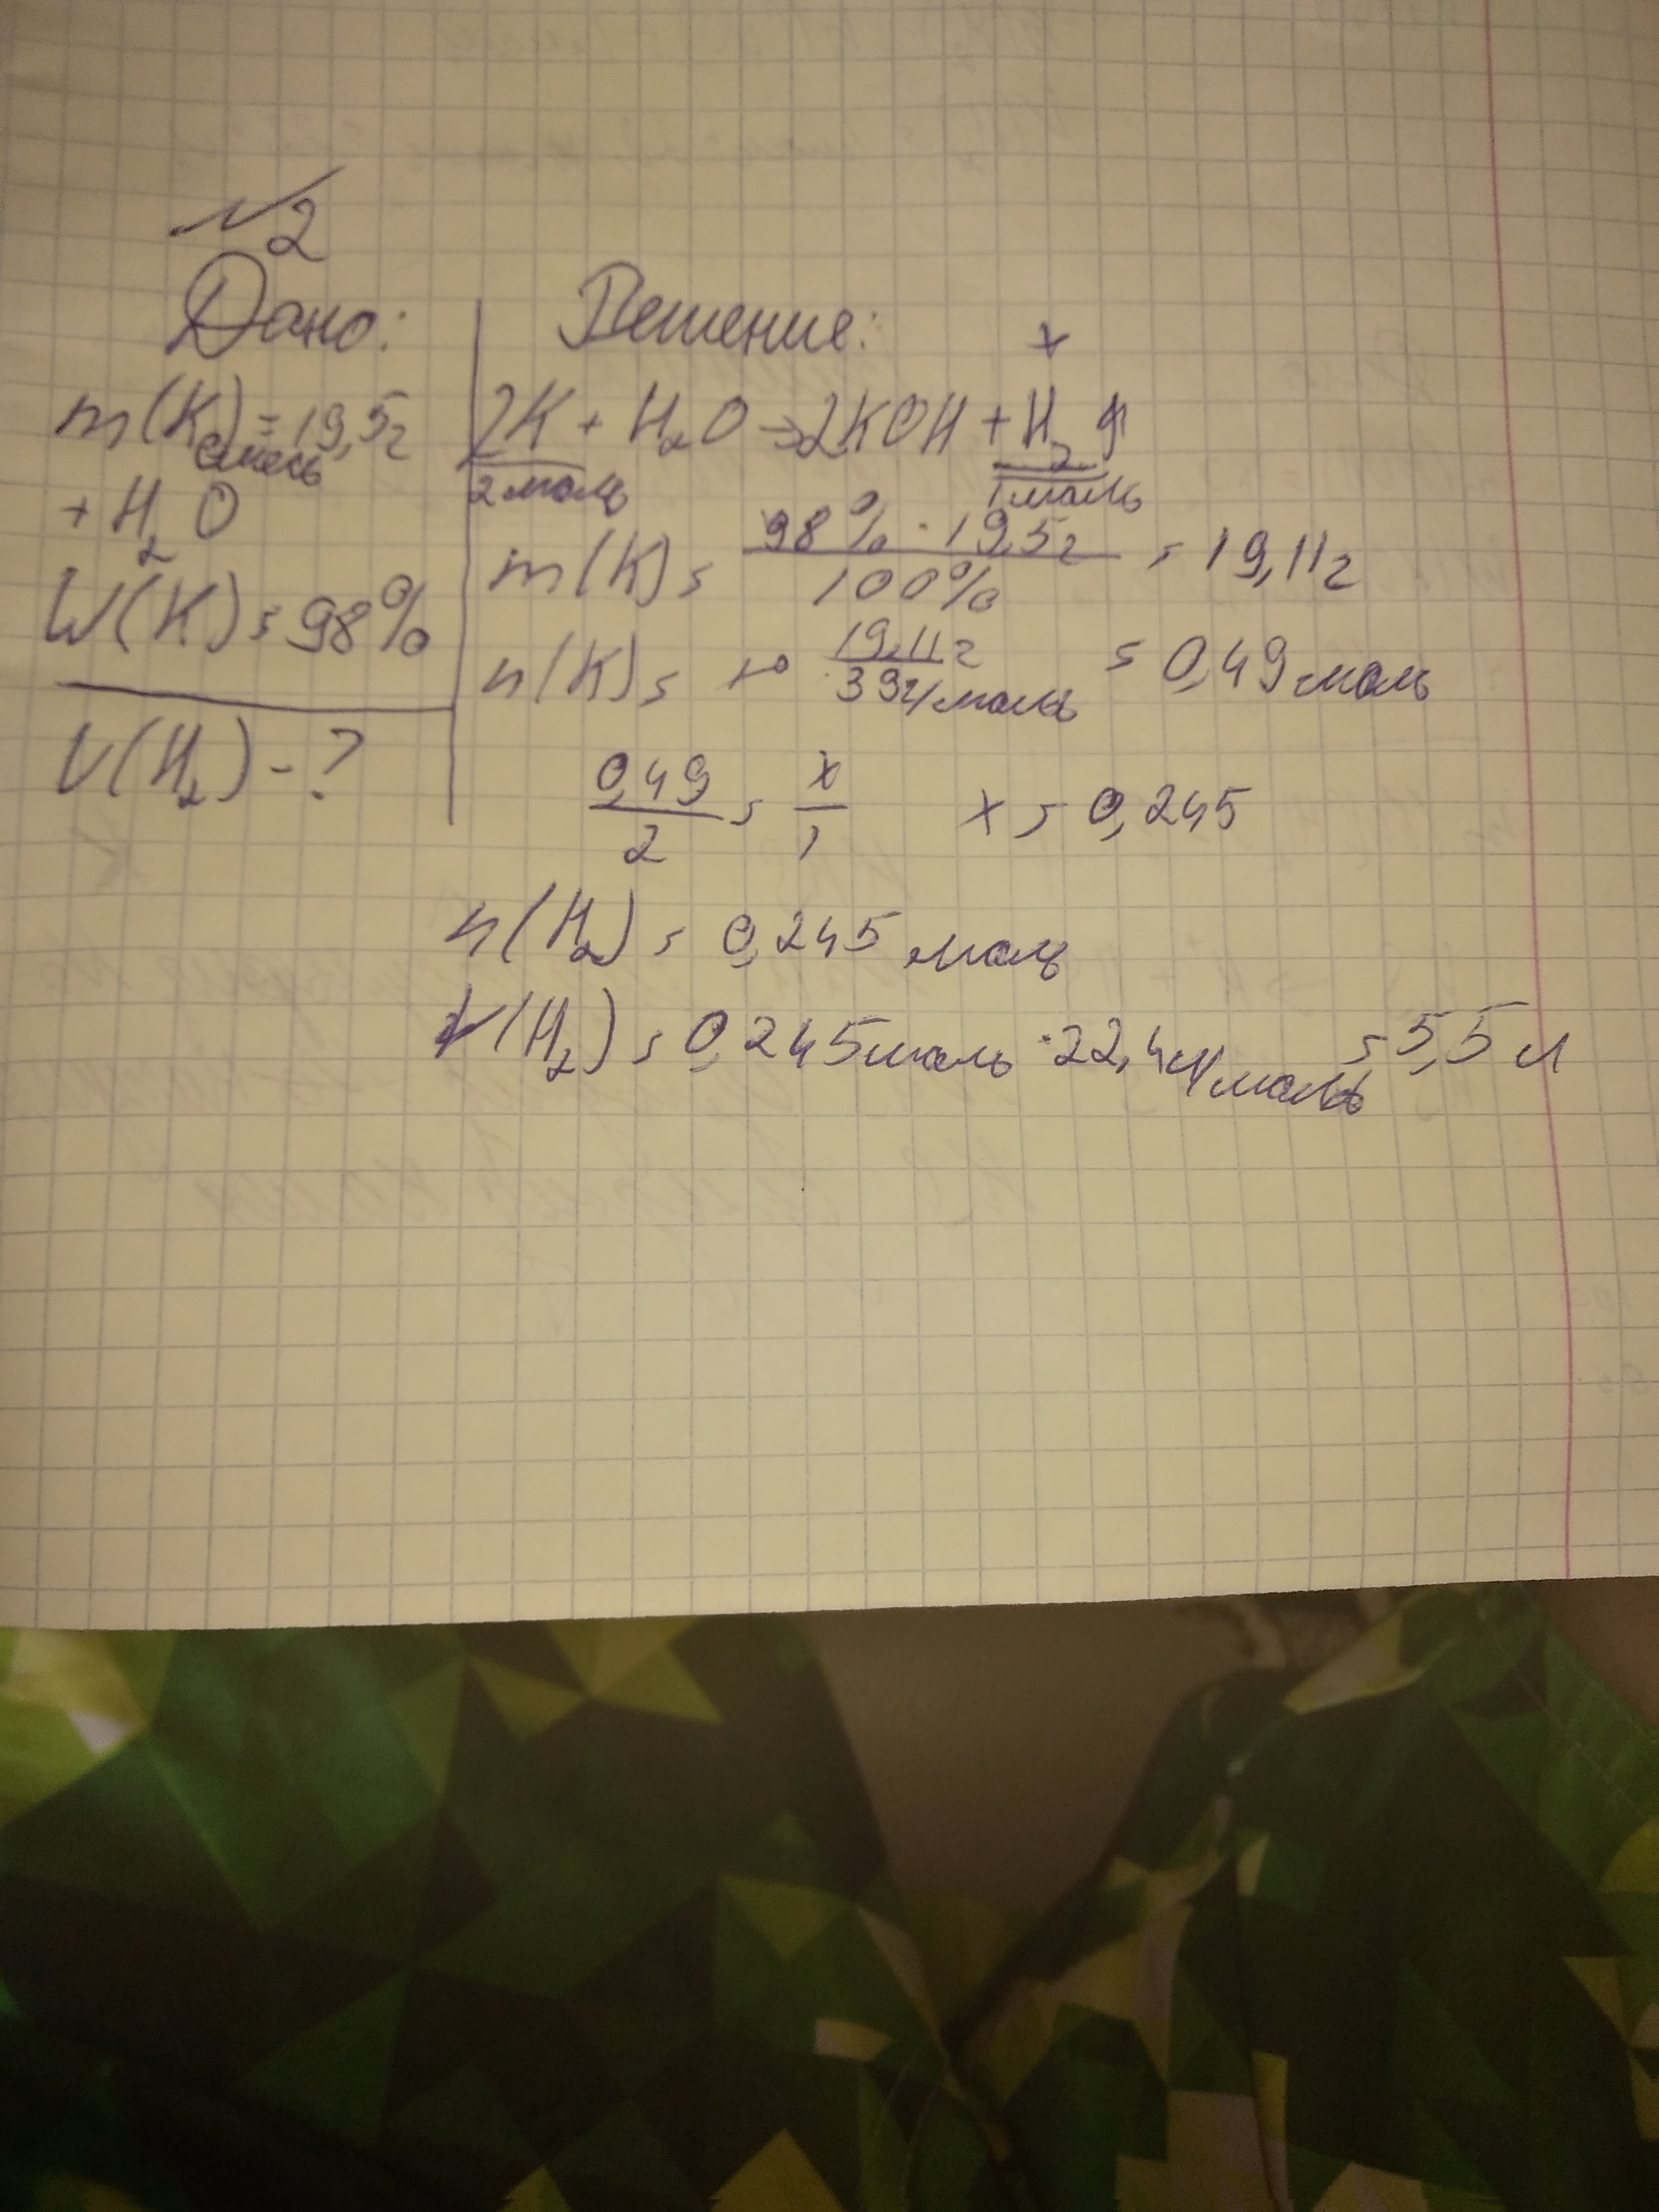 №2
Дано:
m(K)смесь = 19,5г
+ H₂O
W(K) = 98%
V(H₂) - ?
Решение:
x
2K + H₂O → 2KOH + H₂↑
2 моль 1 моль
m(K) = 98% · 19,5г / 100% = 19,11г
n(K) = 19,11г / 39г/моль = 0,49 моль
0,49 / 2 = x / 1 x = 0,245
n(H₂) = 0,245 моль
V(H₂) = 0,245 моль · 22,4л/моль = 5,5 л